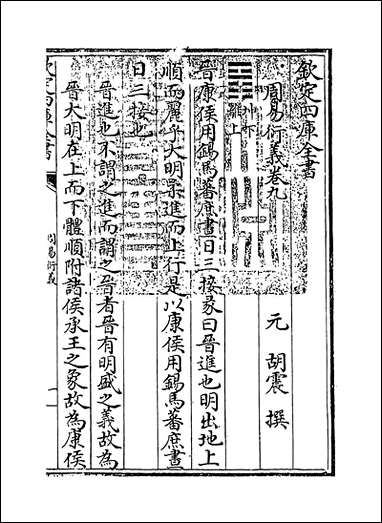 欽定四庫全書
周易衍義卷九
元 胡震 撰
坤下
離上
晉康侯用錫馬蕃庶晝日三接彖曰晉進也明出地上
順而麗乎大明柔進而上行是以康侯用錫馬蕃庶晝
日三接也
晉進也不謂之進而謂之晉者晉有明盛之義故為
晉大明在上而下體順附諸侯承王之象故為康侯
欽定四庫全書
周易衍義
一